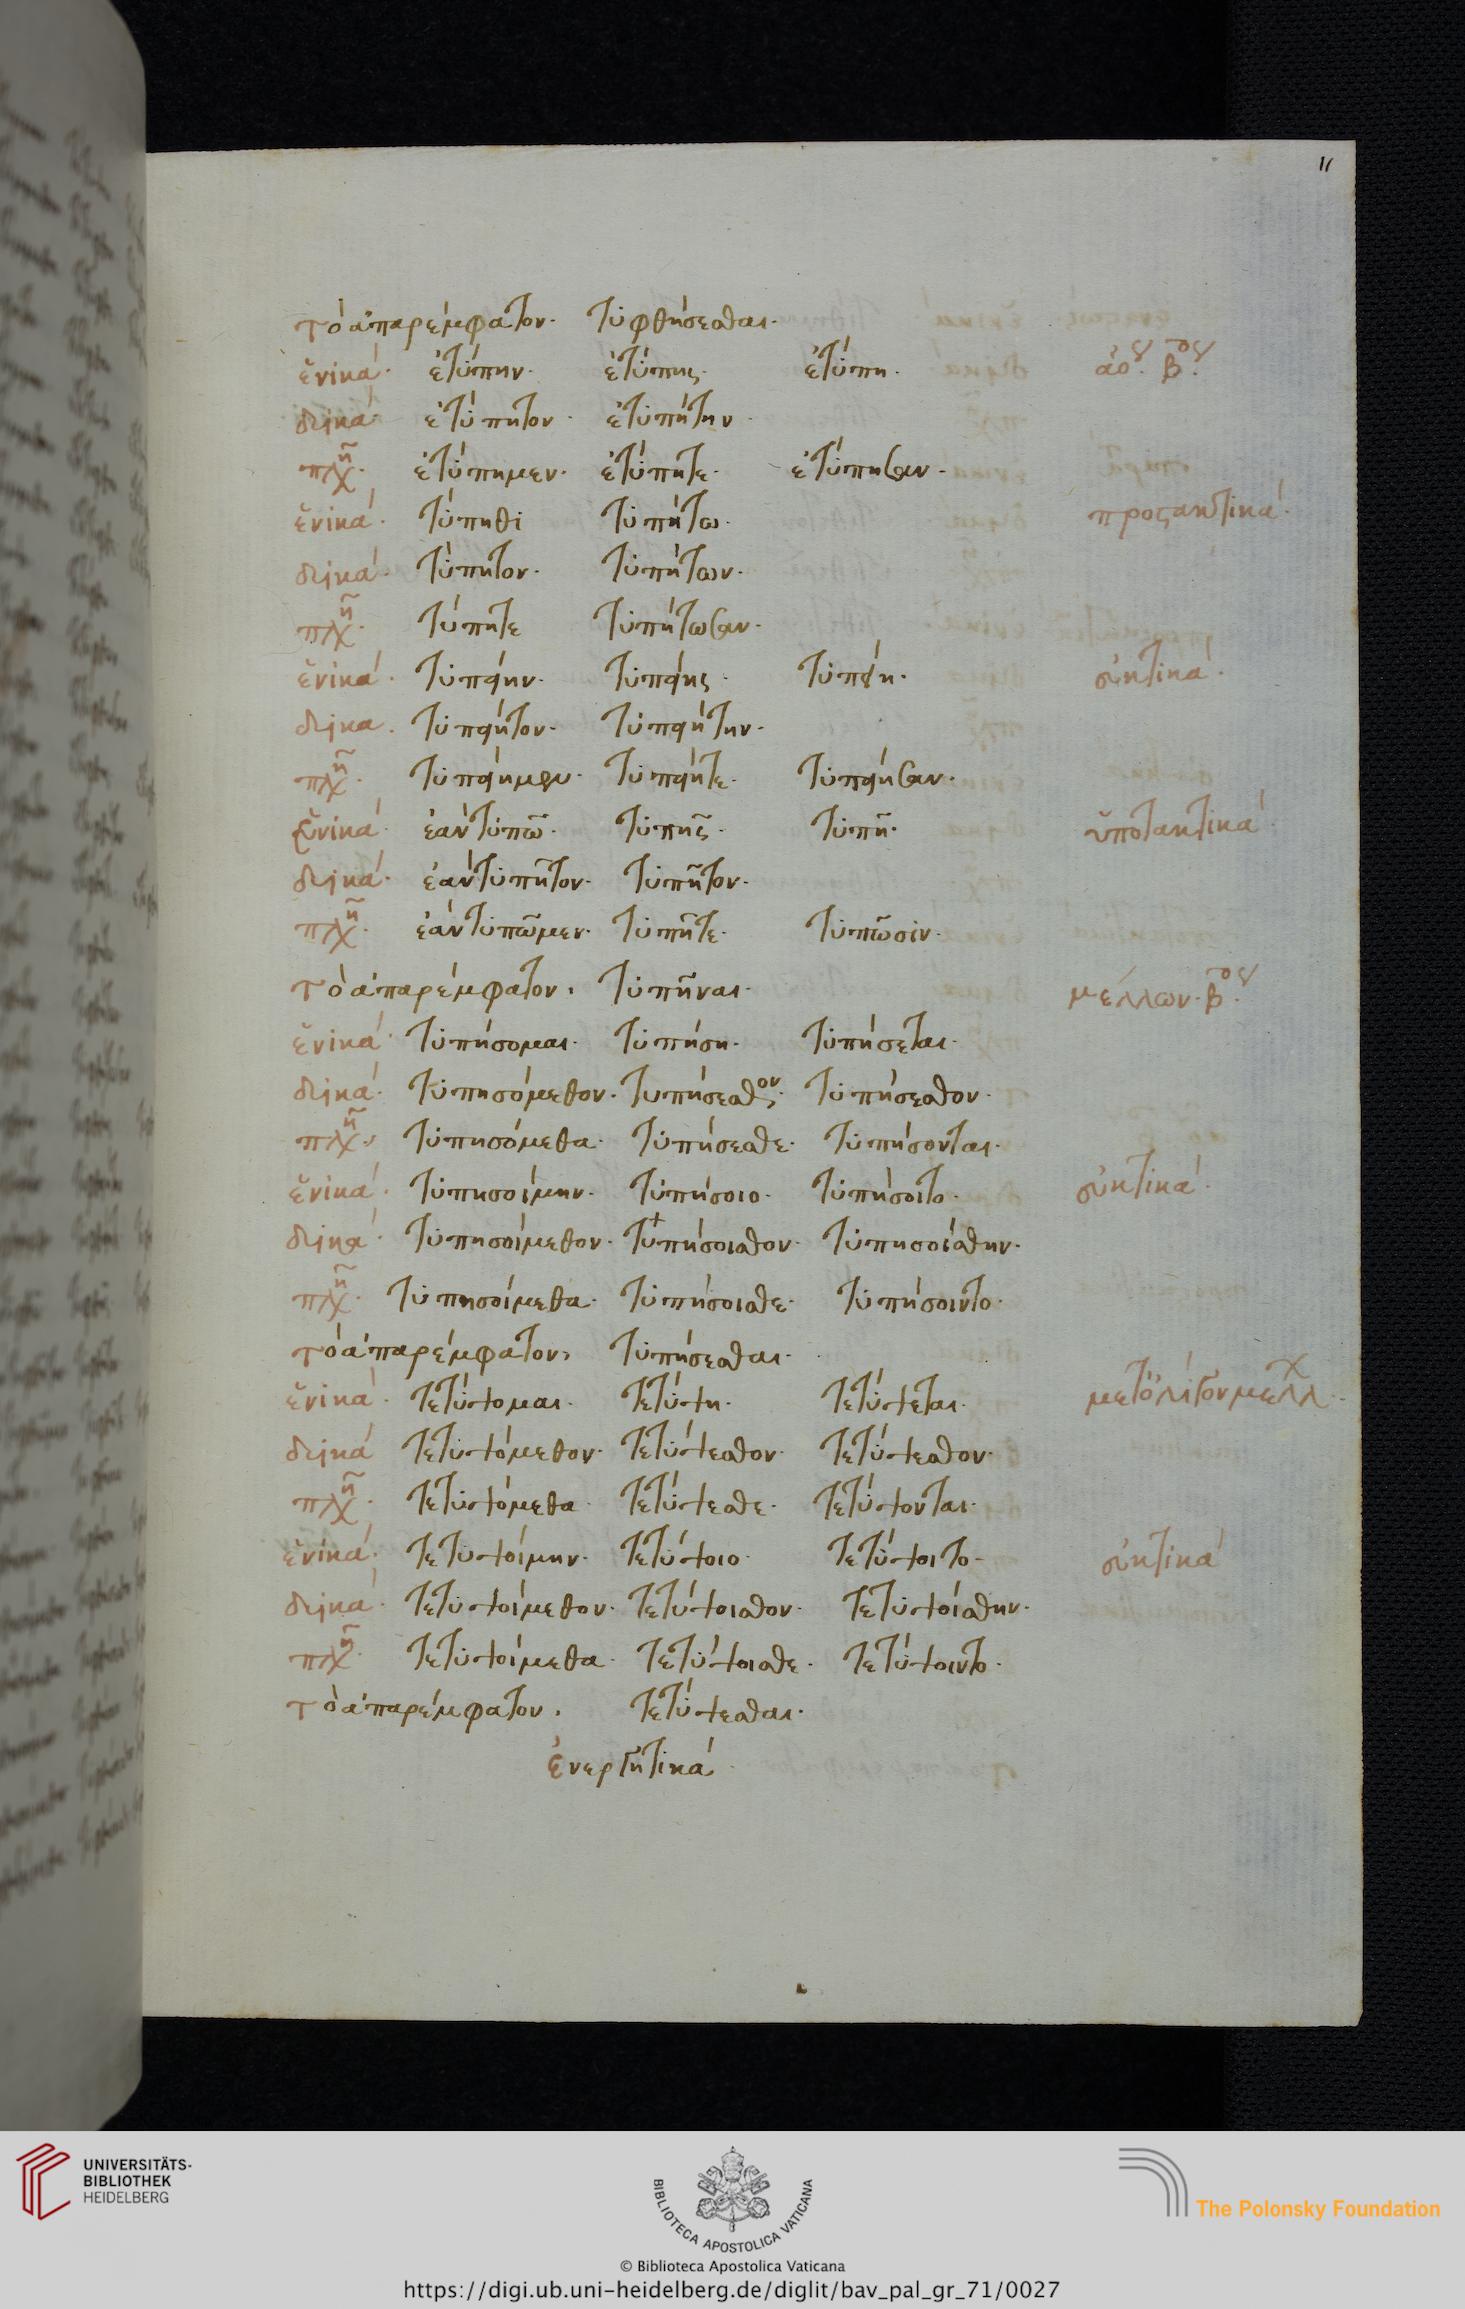 11
τὸ ἀπαρέμφατον· τυφθήσεσθαι·
ἑνικά· ἐτύπην· ἐτύπης· ἐτύπη· ἀο. β.
δυικά· ἐτύπητον· ἐτυπήτην·
πλη· ἐτύπημεν· ἐτύπητε· ἐτύπησαν·
ἑνικά· τύπηθι τυπήτω· προστακτικά·
δυικά· τύπητον· τυπήτων·
πλη· τύπητε τυπήτωσαν·
ἑνικά· τυπείην· τυπείης· τυπείη· εὐκτικά·
δυικά· τυπείητον· τυπειήτην·
πλη· τυπείημεν· τυπείητε· τυπείησαν·
ἑνικά· ἐὰν τυπῶ· τυπῆς· τυπῆ· ὑποτακτικά·
δυικά· ἐὰν τυπῆτον· τυπῆτον·
πλη· ἐὰν τυπῶμεν· τυπῆτε· τυπῶσιν·
τὸ ἀπαρέμφατον· τυπῆναι· μέλλων· β.
ἑνικά· τυπήσομαι· τυπήση· τυπήσεται·
δυικά· τυπησόμεθον· τυπήσεσθον· τυπήσεσθον·
πλη· τυπησόμεθα· τυπήσεσθε· τυπήσονται·
ἑνικά· τυπησοίμην· τυπήσοιο· τυπήσοιτο· εὐκτικά·
δυικά· τυπησοίμεθον· τυπήσοισθον· τυπησοίσθην·
πλη· τυπησοίμεθα· τυπήσοισθε· τυπήσοιντο·
τὸ ἀπαρέμφατον· τυπήσεσθαι·
ἑνικά· τετύψομαι· τετύψη· τετύψεται· μετ' ὀλίγον μελλ
δυικά τετυψόμεθον· τετύψεσθον· τετύψεσθον·
πλη· τετυψόμεθα· τετύψεσθε· τετύψονται·
ἑνικά· τετυψοίμην· τετύψοιο· τετύψοιτο· εὐκτικά
δυικά· τετυψοίμεθον· τετύψοισθον· τετυψοίσθην·
πλη· τετυψοίμεθα· τετύψοισθε· τετύψοιντο·
τὸ ἀπαρέμφατον· τετύψεσθαι·
ἐνεργητικά·
UNIVERSITÄTS-
BIBLIOTHEK
HEIDELBERG
BIBLIOTECA APOSTOLICA VATICANA
The Polonsky Foundation
© Biblioteca Apostolica Vaticana
https://digi.ub.uni-heidelberg.de/diglit/bav_pal_gr_71/0027